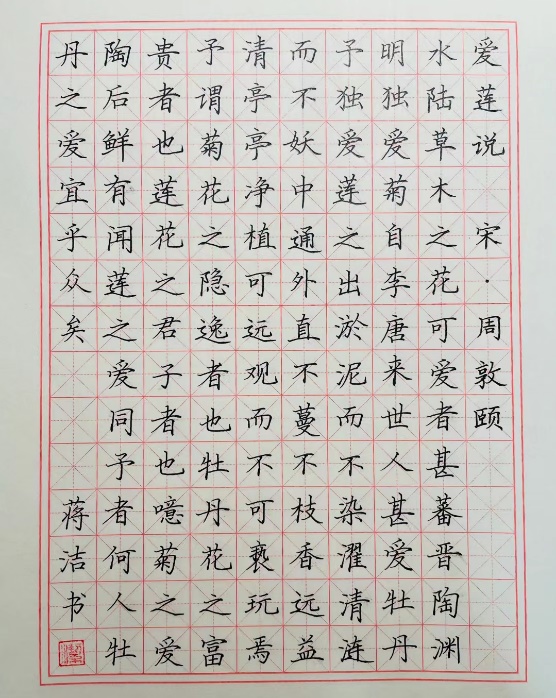 爱莲说 宋·周敦颐
水陆草木之花可爱者甚蕃晋陶渊
明独爱菊自李唐来世人甚爱牡丹
予独爱莲之出淤泥而不染濯清涟
而不妖中通外直不蔓不枝香远益
清亭亭净植可远观而不可亵玩焉
予谓菊花之隐逸者也牡丹花之富
贵者也莲花之君子者也噫菊之爱
陶后鲜有闻莲之爱同予者何人牡
丹之爱宜乎众矣 蒋洁书